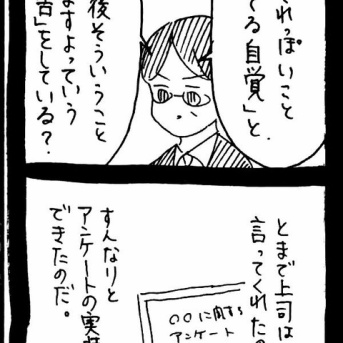 れっぽいこと
てる自覚」と、
後そういうこと
ますよっていう
をしている?
とまで上司は
言ってくれた
すんなりと
アンケートの実
できたのだ。
○○に関する
アンケート